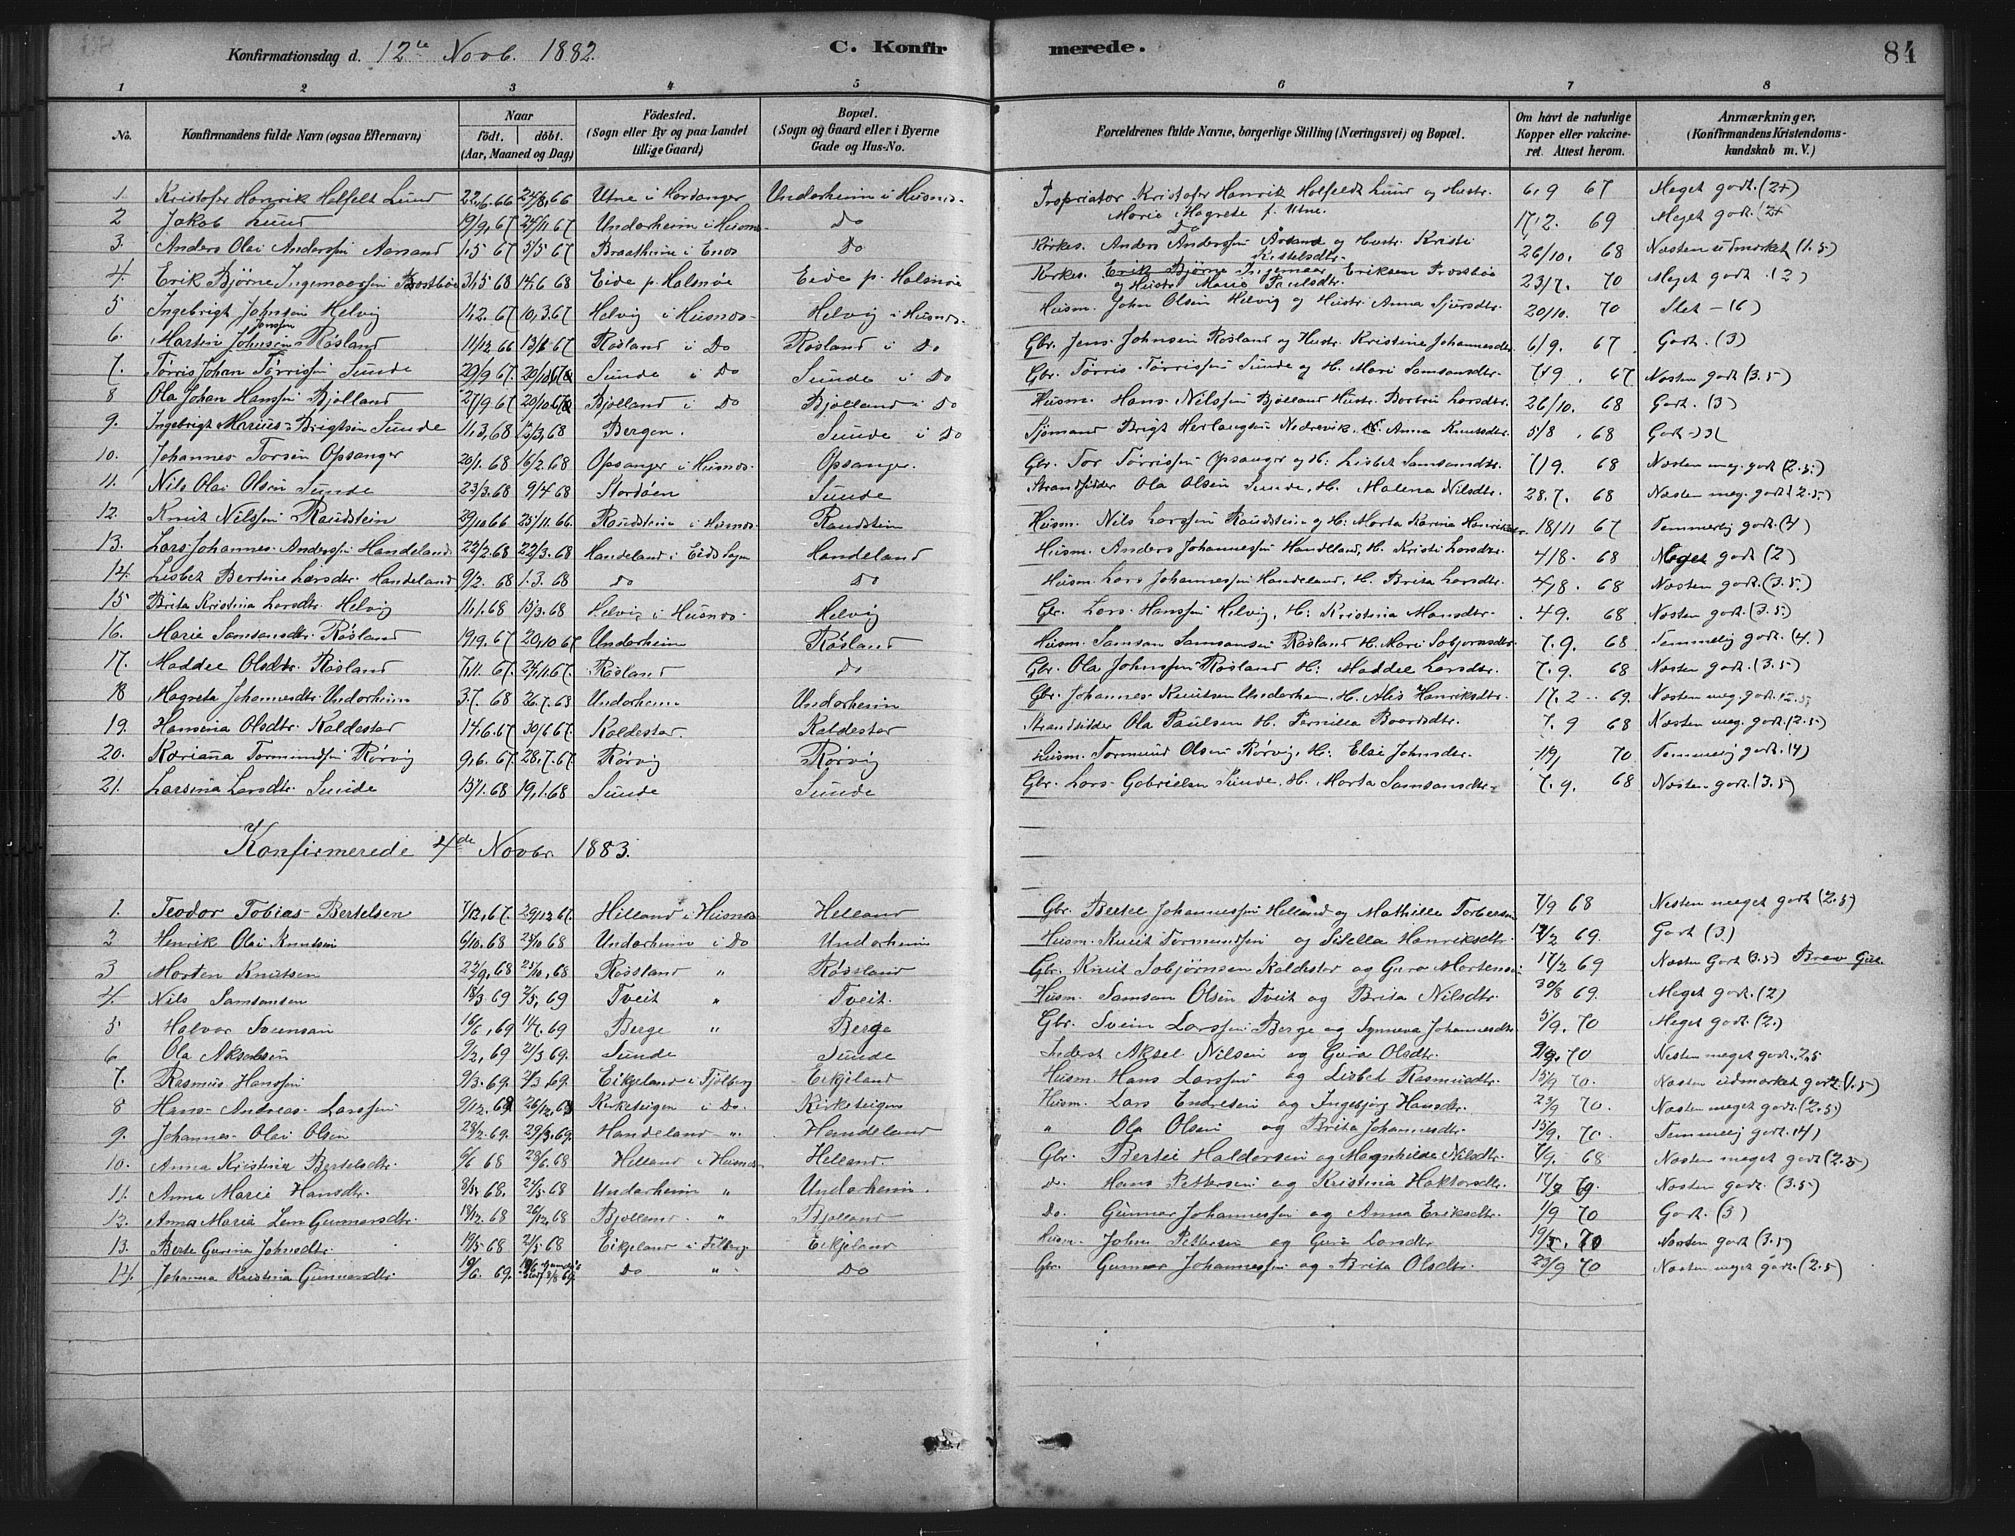 Konfirmationsdag d. 12te Novb. 1882. C. Konfirmerede. 84
1 2 3 4 5 6 7 8
No. Konfirmandens fulde Navn (ogsaa Efternavn) Naar födt. döbt. (Aar, Maaned og Dag) Födested. (Sogn eller By og paa Landet tillige Gaard) Bopæl. (Sogn og Gaard eller i Byerne Gade og Hus-No. Forældrenes fulde Navne, borgerlige Stilling (Næringsvei) og Bopæl. Om havt de naturlige Kopper eller vakcineret. Attest herom. Anmærkninger. (Konfirmandens Kristendomskundskab m. V.)
1 Kristofer Henrik Holfelt Lund 22,6,66 24/8,66 Utne i Hardanger Undarheim i Husnes Propriatør Kristofer Henrik Holfeldt Lund og Hustr. Marie Magrete f. Utne. 6,9 67 Meget godt. (2+)
2 Jakob Lund 19/9,67 24/11.67 Undarheim i Husnes Do Do 17,2. 69 Meget godt. (2+)
3. Anders Olai Anderssen Aarsand 1.5 67 5/5 67 Braatheim i Enes Do Kirkes. Anders Anderssen og Hustr. Kristi 26/10. 68 Næsten udmærket (1.5)
4. Erik Bjørne Ingemarssen Prostbøe 31,5 68 14,6 68 Eide p. Halsnøe Eide p. Halsnøe Kirkes. Erik Bjørne Ingemaar Eriksen Prostbøe og Hustr. Mari Paulsdtr. 23/7. 70 Meget godt. (2)
5 Ingebrigt Johnsen Helvig 11,2.67 10,3.67 Helvig i Husnes Helvig i Husnes Husm. John Olsen Helvig og Hustr. Anna Sjursdtr. 20/10. 70 Slet - (6)
6. Martin Johnsen Jensen Røsland 11/12 66 Røsland i Do Røsland i Do Gbr. Jens Johnsen Røsland og Hustr. Kristine Johannesdtr. 6/9. 67 Godt. (3)
7. Tørris Johan Tørrissen Sunde 29/9 67. Sunde i Do Sunde i Do Gbr. Tørris Tørrissen Sunde og H. Mari Samsonsdtr. 7/9 67 Næsten godt (3.5)
8 Ola Johan Hanssen Bjølland 27/9 67 Bjølland i Do Bjølland i Do Husm. Hans Nilssen Bjølland Hustr. Barbru Larsdtr. 26/10. 68 Godt. (3)
9. Ingebrigt Marius Brigtsen Sunde 11,3,68 Bergen. Sunde i Do Sjømand Brigt Herlaugsen Nedrevik, H. Anna Knutsdtr. 5/8 68 Godt (3)
10. Johannes Torsen Opsanger 20/1.68 16/2.68 Opsanger i Husnes Opsanger. Gbr. Tor Tørrissen Opsanger og H. Lisbet Samsondtr. 7/9. 68 Næsten meg. godt (2.5)
11. Nils Olai Olsen Sunde 23/3.68 9/4 68 Stordøen Sunde Strandsidder Ola Olsen Sunde, H. Malena Nilsdtr. 28.7. 68 Næsten meg. godt (2.5)
12. Knut Nilssen Raudstein 29/10 66 25/11.66 Raudstein i Husnes Raudstein Husm. Nils Larssen Raudstein og H. Marta Karina Henriksdtr. 18/11 67 Temmelig godt. (4)
13. Lars Johannes Anderssen Handeland 22/2.68 22/3.68 Handeland i Eids Sogn Handeland Husm. Anders Johannessen Handeland, H. Kristi Larsdtr. 4/8. 68 Meget godt (2)
14. Lisbet Bertine Larsdtr. Handeland 9/2 68 1.3.68 Do Do Husm. Lars Johannessen Handeland, H. Brita Larsdtr. 4/8. 68 Næsten godt. (3.5)
15 Brita Kristina Larsdtr. Helvig 11,1.68 15/3.68 Helvig i Husnes Helvig Gbr. Lars Hanssen Helvig, H. Kristina Mansdtr. 4 9. 68 Næsten godt (3.5)
16. Marie Samsonsdtr. Røsland 19,9,67 20,10 67 Undarheim Røsland Husm. Samson Samsonsen Røsland H. Mari 7.9. 68 Temmelig godt. (4.)
17. Maddle Olsdtr. Røsland 7,11.67. 24.11.67. Røsland Do Gbr. Ola Johnsen Røsland H. Maddel Larsdtr. 7.9. 68 Næsten godt. (3.5)
18 Magreta Johannesdtr. Undarheim 3.7.68 26.7.68 Undarheim Undarheim Gbr. Johannes Knutsen Undarheim, H. Alis Henriksdtr. 17.2. 69. Næsten meg. godt 2.5
19. Hansina Olsdtr. Kaldestar 14,6.67 30/6 67 Kaldestar. Kaldestar Strandsidder Ola Paulsen H. Pernilla Boordsdtr. 7.9 68 Næsten meg. godt. (2.5)
20. Kariana Tormundsen Rørvig 9,6.67 28.7.67 Rørvig Rørvig Husm. Tormund Olsen Rørvig, H. Elai Johnsdtr. 70 Temmelig godt. (4)
21. Larsina Larsdtr. Sunde 13/1.68 19,1.68 Sunde Sunde Gbr. Lars Gabrielsen Sunde, H. Marta Samsonsdtr. 7.9. 68 Næsten godt. (3.5)
Konfirmerede 4de Novbr. 1883.
1. Teodor Tobias Bertelsen 7/12,67. 29/12 67. Hilland i Husnes Helland Gbr. Bertel Johannessen Helland og Mathilde Torbersen 7/9 68 Nesten meget godt (2.5)
2 Henrik Olai Knutsen 6/10.68 Undarheim i Do Undarheim Husm. Knut Tormundsen og Silella Henriksdtr. 17/2 69. Godt (3.)
3 Morten Knutsen 22/9.68 25/10,68 Røsland " Røssland Gbr. Knut Kaldestar og Guro Mortensen 17/2 69 Næsten Godt (3.5) Brav Gut.
4. Nils Samsonsen 18/3 69 2/5,69 Tveit " Tveit. Husm. Samson Olsen Tveit og Brita Nilsdtr. 30/8 69. Meget godt. (2)
5 Halvor Svensen 16/6,69 11/7,69 Berge " Berge Gbr. Svein Larssen Berge og Synneva Johannesdtr. 5/9. 70 Meget godt. (2.)
6 Ola Akselsen 9/2,69 21/3 69. Sunde Sunde Inderst Aksel Nilsen og Guro Olsdtr. 70 Nesten meget godt. 2.5
7. Rasmus Hanssen 9/3.69. 21/3 69. Eikjeland i Fjelberg Eikjeland Husm. Hans Larssen og Lisbet Rasmusdtr. 15/9 70. Næsten udmærket godt. (1.5)
8 Hans Andreas Larssen 9/12.68 26/12.68 Kirketeigen i Do. Kirketeigen Husm. Lars Endresen og Ingebjørg Hansdtr. 23/9 70. Næsten meget godt. (2.5)
9. Johannes Olai Olsen 28/2.69. 29/3,69. Handeland " Handeland " Ola Olsen og Brita Johannesdtr. 15/9. 70 Temmelig godt. (4)
10. Anna Kristina Bertelsdtr. 6/6 68 28/6.68 Helland i Husnes Helland. Gbr. Bertel Haldorsen og Magnhilda Nilsdtr. 7/9. 68 Næsten meget godt (2.5)
11. Anna Marie Hansdtr. 3/5 68. 24/5.68 Undarheim " Undarheim. Do. Hans Pettersen og Kristina Haktorsdtr. 17/2 69. Næsten godt. (3.5)
12. Anna Maria Lem Gunnarsdtr. 18/12.68 26/12.68 Bjølland. " Bjølland Do. Gunnar Johannessen og Anna Eriksdtr. 1/9 70 Godt. (3)
13. Berte Gurina Johnsdtr. 19/5.68 21/5.68 Eikjeland i Fjelberg Eikjeland Husm. John Pettersen og Guro Larsdtr. 70 Næsten godt (3.5)
14. Johanna Kristina Gunnarsdtr. 10/6. 69. Do " Do Gbr. Gunnar Johannessen og Brita Olsdtr. 23/9 70 Næsten meget godt. (2.5)